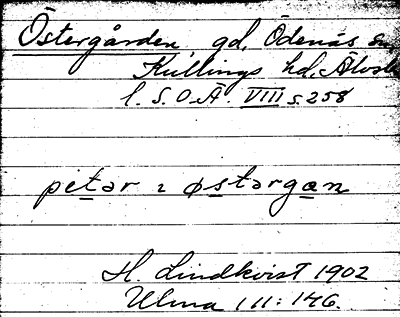 Östergården, gd, Ödenäs sn
Kullings hd, Älvsb
l. S.O.Ä. VIII s. 258
petər ı østərgan
H. Lindkvist 1902
Ulma 111: 146.